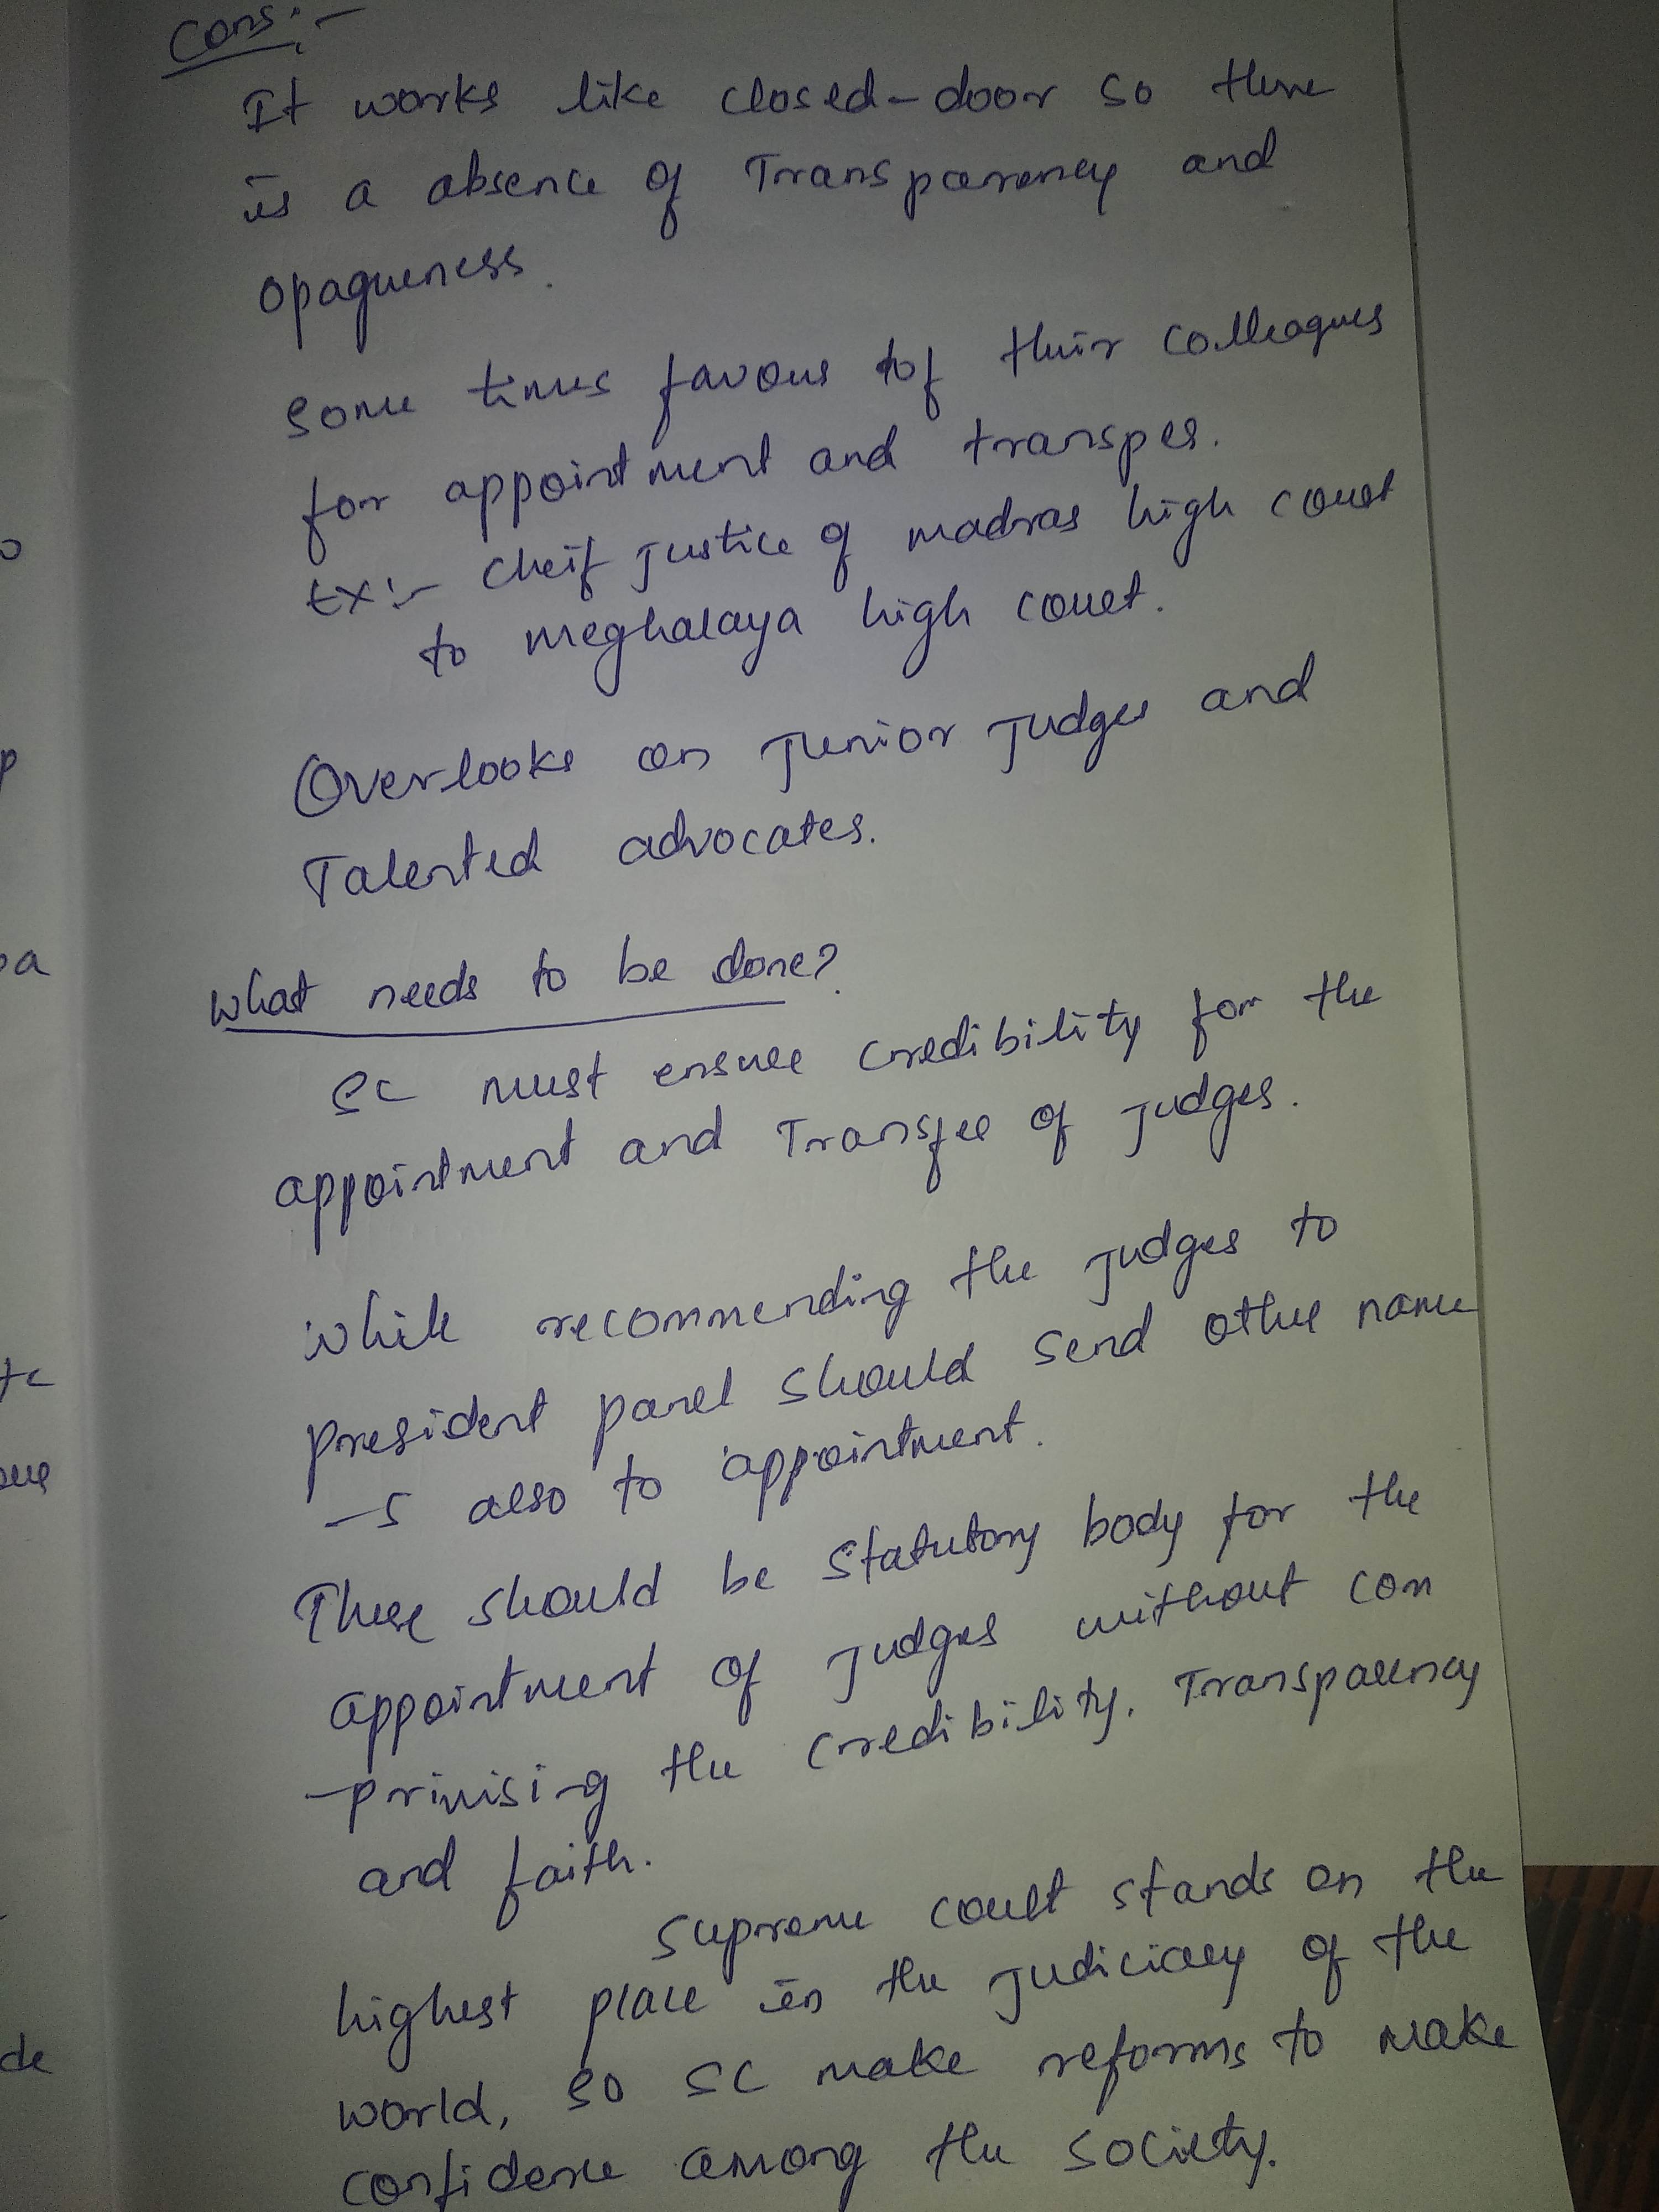 Cons:-
It works like closed-door so there
is a absence of Transparency and
opaqueness.
some times favous of their colleagues
for appointment and transper.
Ex:- Cheif Justice of madras high court
to meghalaya high court.
Overlooks on Junior Judges and
Talented advocates.
What needs to be done?
SC must ensure credibility for the
appointment and Transfer of Judges.
While recommending the Judges to
president panel should send other name
-s also to appointment.
There should be statutory body for the
appointment of Judges without com
-primising the credibility, Transparency
and faith.
Supreme court stands on the
highest place in the Judiciary of the
world, so SC make reforms to make
confidence among the society.